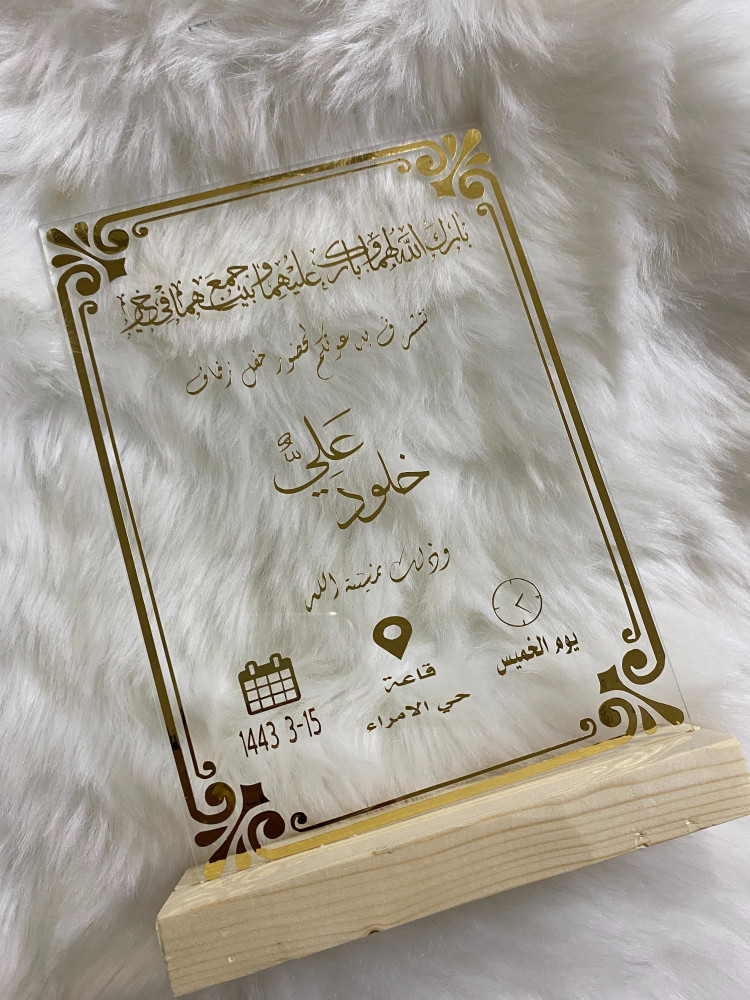 بارك الله لهما وبارك عليهما وجمع بينهما في خير
نتشرف بدعوتكم لحضور حفل زفاف
علي
خلود
وذلك بمشيئة الله
يوم الخميس
قاعة
حي الامراء
1443 3-15